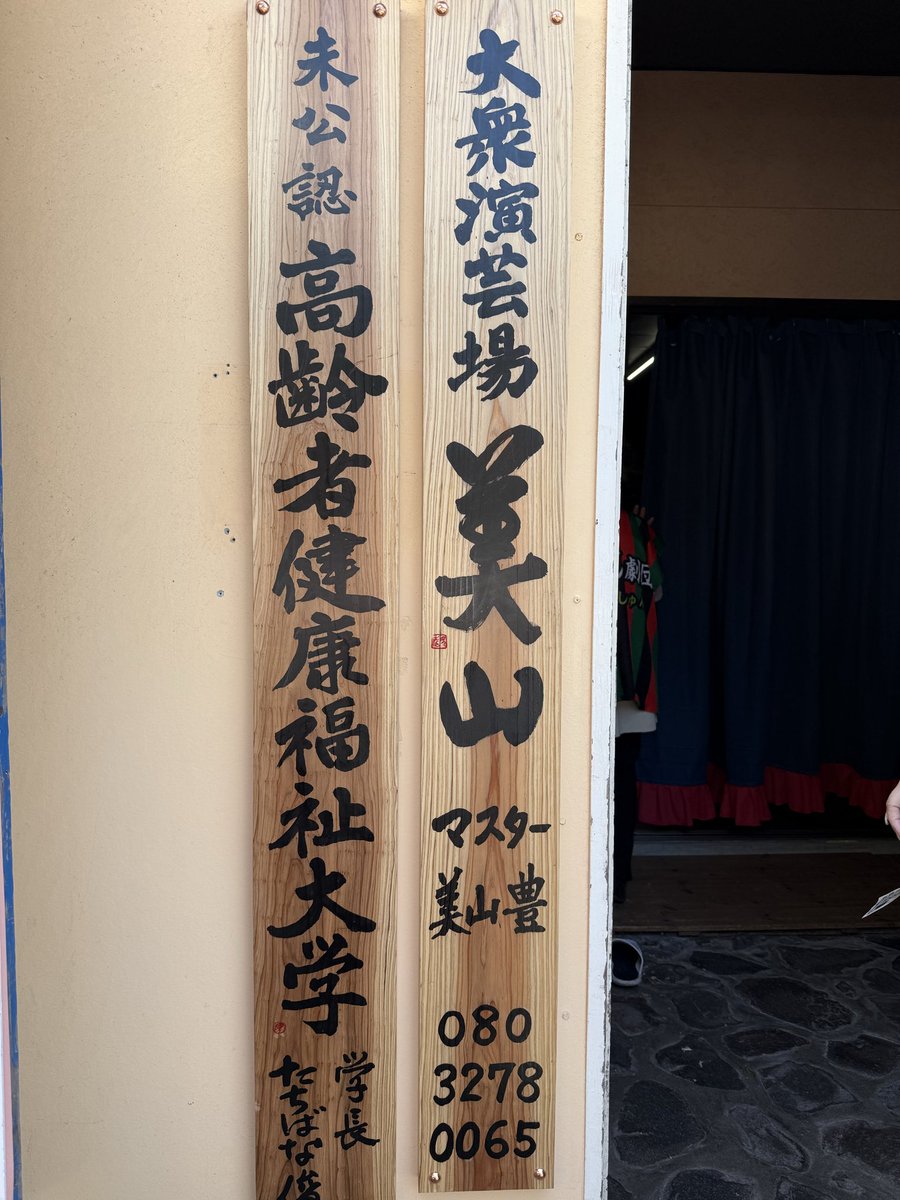 大衆演芸場 美山
マスター
美山豊
080
3278
0065
未公認 高齢者健康福祉大学
学長
たちばな
劇団